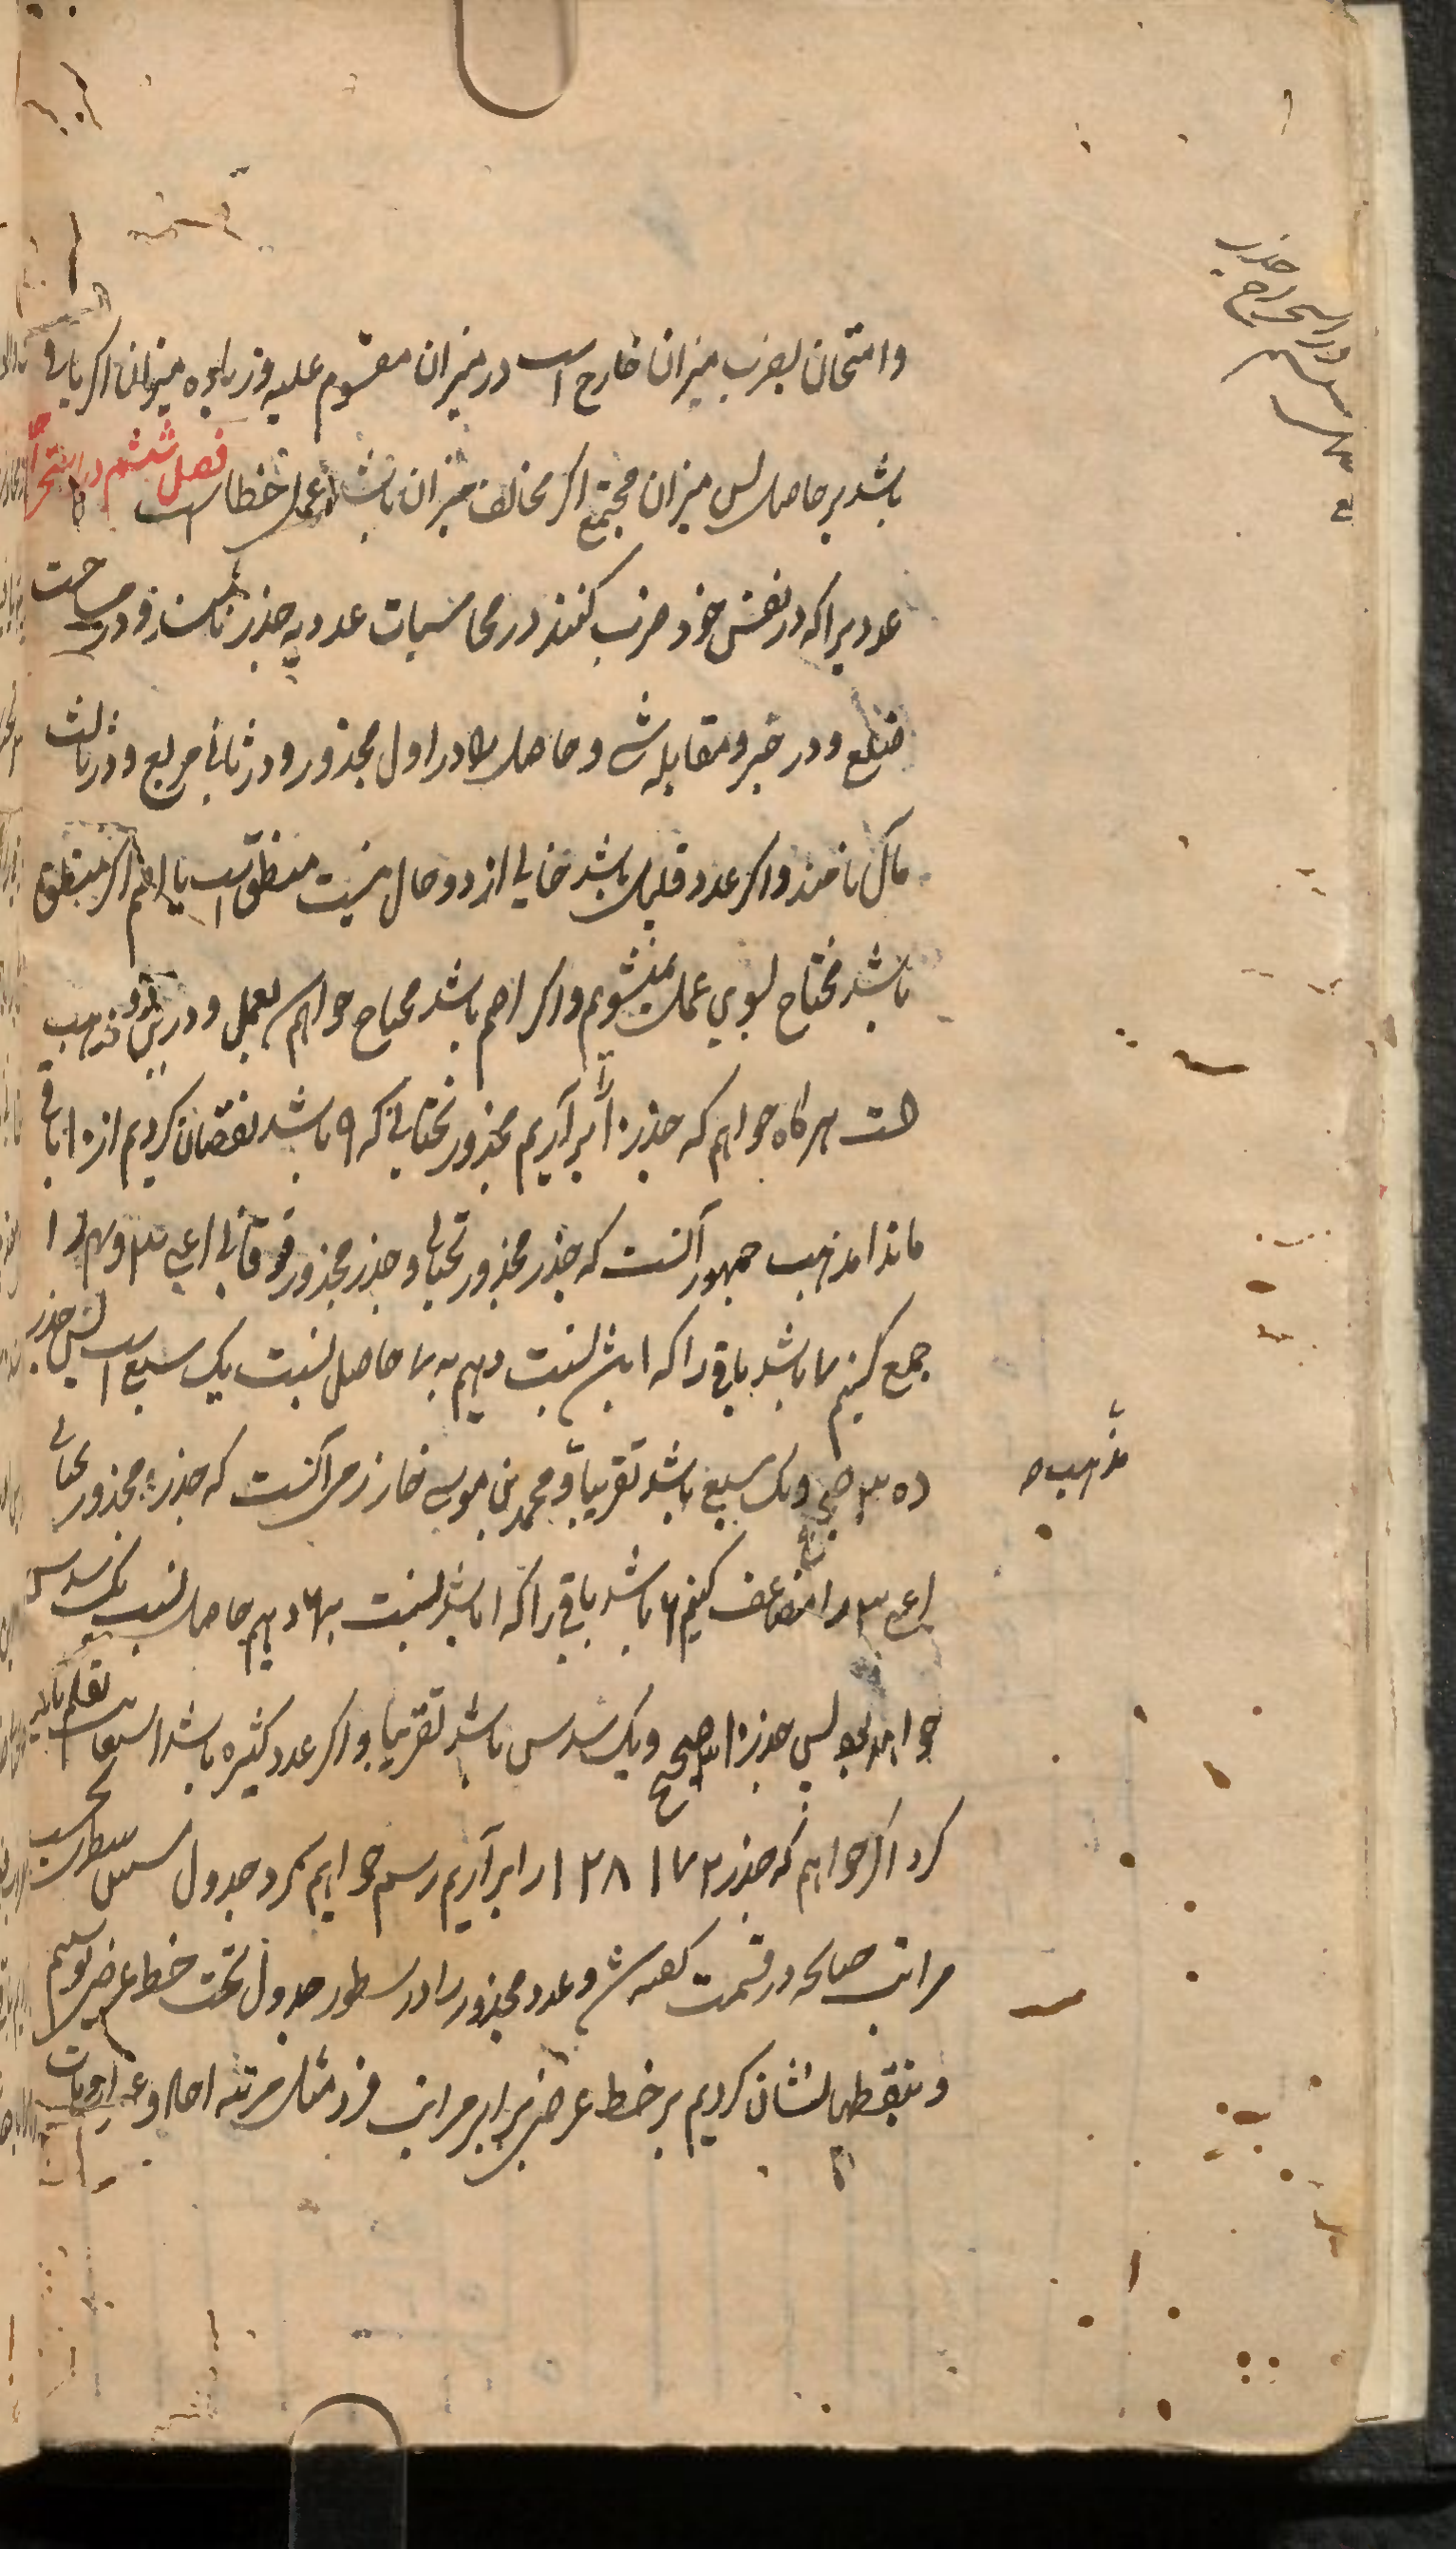 وامتحان بضرب میزان خارج است در میزان مقسوم علیه و زیاده میزان اکر باقی
باشد بر حاصل پس میزان مجتمع اکر مخالف میزان باشد عمل خطا است فصل ششم در استخراج
عددیرا که در نفس خود ضرب کنند در محاسبات عددیه جذر نامند و در مساحت
ضلع و در جبر و مقابله شی و حاصل را در اول مجذور و در ثانی مربع و در ثالث
مال نامند و اکر عدد قلیل باشد خالی از دو حال نیست منطق است یا اصم اکر منطق
باشد محتاج بسوی عمل نمیشویم و اکر اصم باشد محتاج خواهیم بعمل و درین دو مذهب
است هرکاه خواهیم که جذر ۱۰ را برآریم مجذور تحتانی که ۹ باشد نقصان کردیم از ۱۰ باقی
ماند ۱ مذهب جمهور آنست که جذر مجذور تحتانی و جذر مجذور فوقانی اعنی ۳ و ۴ را
جمع کنیم ۷ باشد باقی را که ۱ باشد نسبت دهیم به ۷ حاصل نسبت یک سبع است پس جذر
ده ۳ صحیح و یک سبع باشد تقریباً و محمد بن موسی خارزمی آنست که جذر مجذور تحتانی
مذهب
اعنی ۳ را مضاعف کنیم ۶ باشد باقی را که ۱ باشد نسبت به ۶ دهیم حاصل نسبت یک سدس
خواهد بود پس جذر ۱۰ ۳ صحیح و یک سدس باشد تقریبا و اکر عدد کثیره باشد استعانت بقلم باید
کرد اکر خواهیم که جذر ۱۲۸۱۷۲ را برآریم رسم خواهیم کرد جدول سطور بحسب
مراتب صالحه در قسمت کفته شد و عدد مجذور را در سطور جدول تحت خط عرضی نویسیم
و بنقطها نشان کردیم بر خط عرضی برابر مراتب فرد مثل مرتبه احاد و